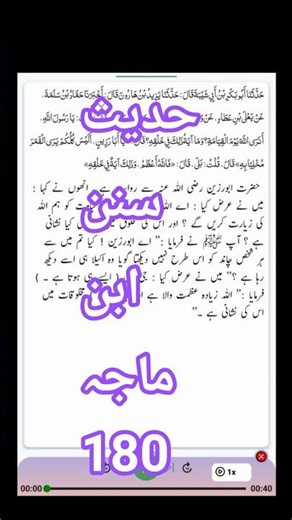 حَدَّثَنَا أَبُو بَكْرِ بْنُ أَبِي شَيْبَةَ قَالَ: حَدَّثَنَا يَزِيدُ بْنُ هَارُونَ قَالَ: أَخْبَرَنَا حَمَّادُ بْنُ سَلَمَةَ،
عَنْ يَعْلَى بْنِ عَطَاءٍ، عَنْ وَ
قَالَ: قُلْتُ: يَا رَسُولَ اللَّهِ،
أَنَرَى اللَّهَ يَوْمَ الْقِيَامَةِ؟ وَمَا آيَةُ ذَلِكَ فِي خَلْقِهِ؟ قَالَ: يَا أَبَا رَزِينٍ، أَلَيْسَ كُلُّكُمْ يَرَى الْقَمَرَ
مُخْلِيًا بِهِ؟ قَالَ: قُلْتُ: بَلَى، قَالَ: «فَاللَّهُ أَعْظَمُ، وَذَلِكَ آيَةٌ فِي خَلْقِهِ»
حضرت ابورزین رضی اللہ عنہ سے روایت ہے، انھوں نے کہا :
میں نے عرض کیا : اے اللہ کو ہم اللہ
کی زیارت کریں گے ؟ اور اس کی مخلوق میں اس کی کیا نشانی
ہے ؟ آپ ﷺ نے فرمایا :’’ اے ابورزین ! کیا تم میں سے
ہر شخص چاند کو اس طرح نہیں دیکھتا گویا وہ اکیلا ہی اسے دیکھ
رہا ہے ؟‘‘ میں نے عرض کیا : جی ( ایسے ہی ہوتا ہے ۔ )
فرمایا :’’ اللہ زیادہ عظمت والا ہے مخلوقات میں
اس کی نشانی ہے ۔‘‘
حدیث
سنن
ابن
ماجہ
180
1x
00:00
00:40